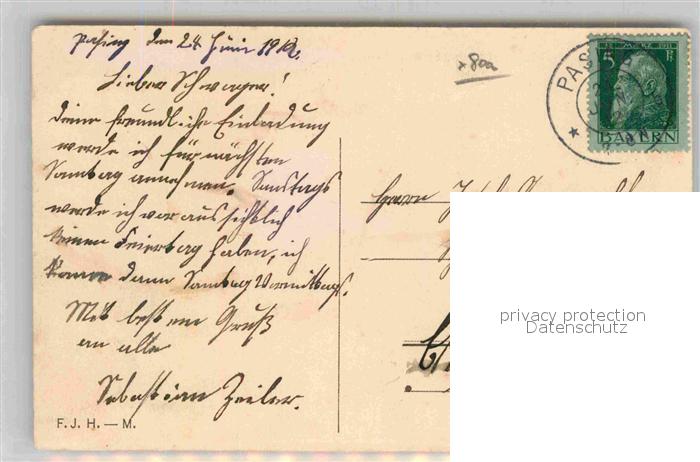 Pasing den 24 Juni 1912.
Lieber Schwager!
Deine freundliche Einladung
werde ich für nächsten
Samstag annehmen. Samstags
werde ich voraussichtlich
keinen Feiertag haben, ich
komme dann Samstag Vormittags.
Mit besten Gruß
an alle
Sebastian Zeiler.
F. J. H. — M.
x80a
PAS
5 Pf
BAYERN
Herrn
privacy protection
Datenschutz